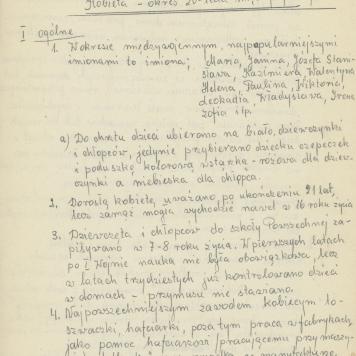 Kobieta - okres 20-lecia
I ogólne
1. W okresie międzywojennym, najpopularniejszymi
imionami to imiona; Maria, Janina, Józefa Stani-
sława, Kazimiera, Walentyna
Helena, Paulina, Wiktoria,
Leokadia, Władysława, Irena
Zofia i tp.
a) Do chrztu dzieci ubierano na biało, dziewczynki
i chłopców, jedynie przybierano dziecku czepeczek
i poduszkę kolorową wstążką - różową dla dziew-
czynki a niebieską dla chłopca.
2. Dorosłą kobietę uważano po ukończeniu 21 lat,
lecz zamąż mogła wychodzić nawet w 16 roku życia
3. Dziewczęta i chłopców do szkoły Powszechnej za-
pisywano w 7-8 roku życia. W pierwszych latach
po I Wojnie nauka nie była obowiązkowa, lecz
w latach trzydziestych już kontrolowano dzieci
w domach - przymusu nie stawiano.
4. Najpowszechniejszym zawodem kobiecym to
szwaczki, hafciarki, poza tym praca w fabrykach,
jako pomoc hafciarzom pracującemu przy maszy-